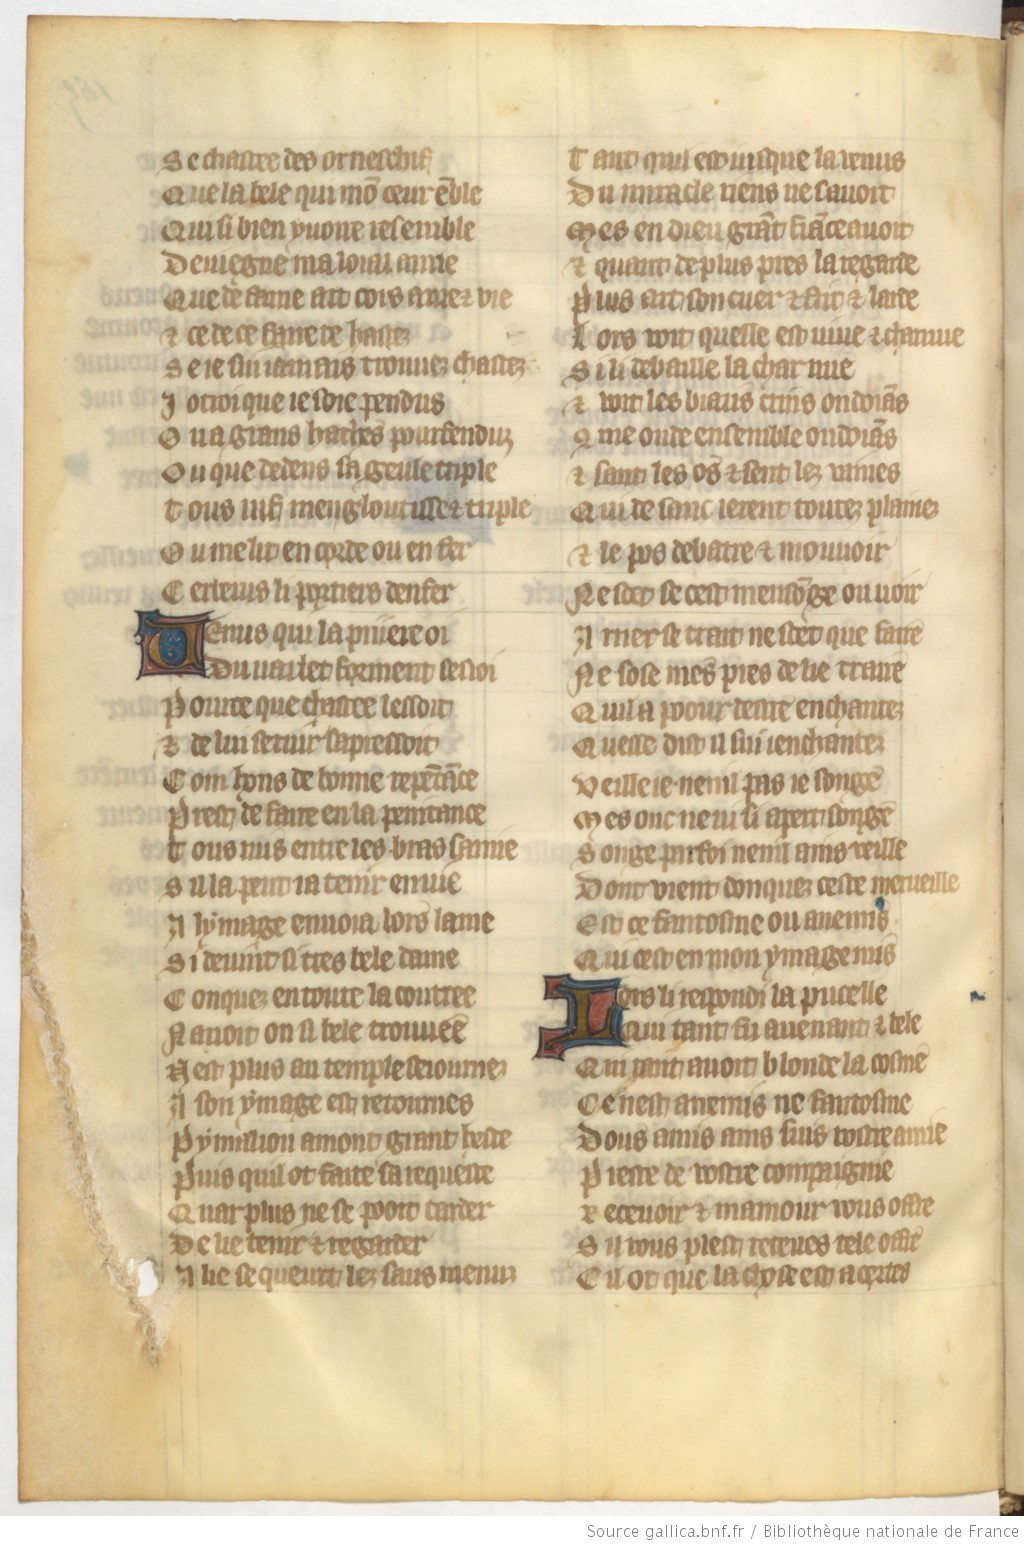 Se chastee des or neschif
Que la bele qui mō ceur ēble
Qui si bien yuoire resemble
Deuiegne ma loial amie
Que de fame ait cors ame ⁊ vie
⁊ ce de ce faire te hastez
Se ie sui iamais trouuez chastez
J otroi que ie soie pendus
Ou a grans haches pourfenduz
Ou que dedens sa geule triple
Tous uis mengloutisse ⁊ triple
Ou me lit en corde ou en fer
Cerberus li portiers denfer
Uenus qui la priiere oi
Du uarlet forment sesioi
Pource que chastee lessoit
⁊ de lui seruir sapressoit
Com hons de bonne repētāce
Prest de faire en la penitance
Tous nus entre les bras samie
Sil la peut ia tenir en uie
A lymage enuoia lors lame
Si deuint si tres bele dame
Conquez en toute la contree
Nauoit on si bele trouuee
Nest plus au temple seiournez
A son ymage est retournes
Pymalion a mont grant heste
Puis quil ot faite sa requeste
Quar plus ne se pooit tarder
De lie tenir ⁊ regarder
A lie sequeurt lez saus menuz
Tant quil est iusque la uenus
Du miracle riens ne sauoit
Mes en dieu grāt fiāce auoit
⁊ quant de plus pres la regarde
Plus art son cuer ⁊ frit ⁊ larde
Lors voit quelle est uiue ⁊ charnue
Si li debaille la char nue
⁊ voit les biaus crins ondoiās
9me onde ensemble ondoiās
⁊ sant les os ⁊ sent lez vaines
Qui de sanc ierent toutez plainez
⁊ le pos debatre ⁊ mouuoir
Ne set se cest mensōge ou uoir
Arrier se trait ne set que faire
Ne sose mes pres de lie traire
Quil a poour destre enchantez
Quesse dist il sui ie enchantez
Veille ie nenil pas ie songe
Mes onc ne ui si apert songe
Songe par foi nenil ains veille
Dont vient donquez ceste merueille
Est ce fantosme ou anemis
Qui cest en mon ymage mis
Lors li respondi la pucelle
Qui tant fu auenant ⁊ bele
Qui tant auoit blonde la cosme
Ce nest anemis ne fantosme
Dous amis ains suis vostre amie
Preste de vostre compaignie
Receuoir ⁊ mamour vous offre
Sil vous plest receues tele offre
Cil ot que la chose est a certes
Source gallica.bnf.fr / Bibliothèque nationale de France